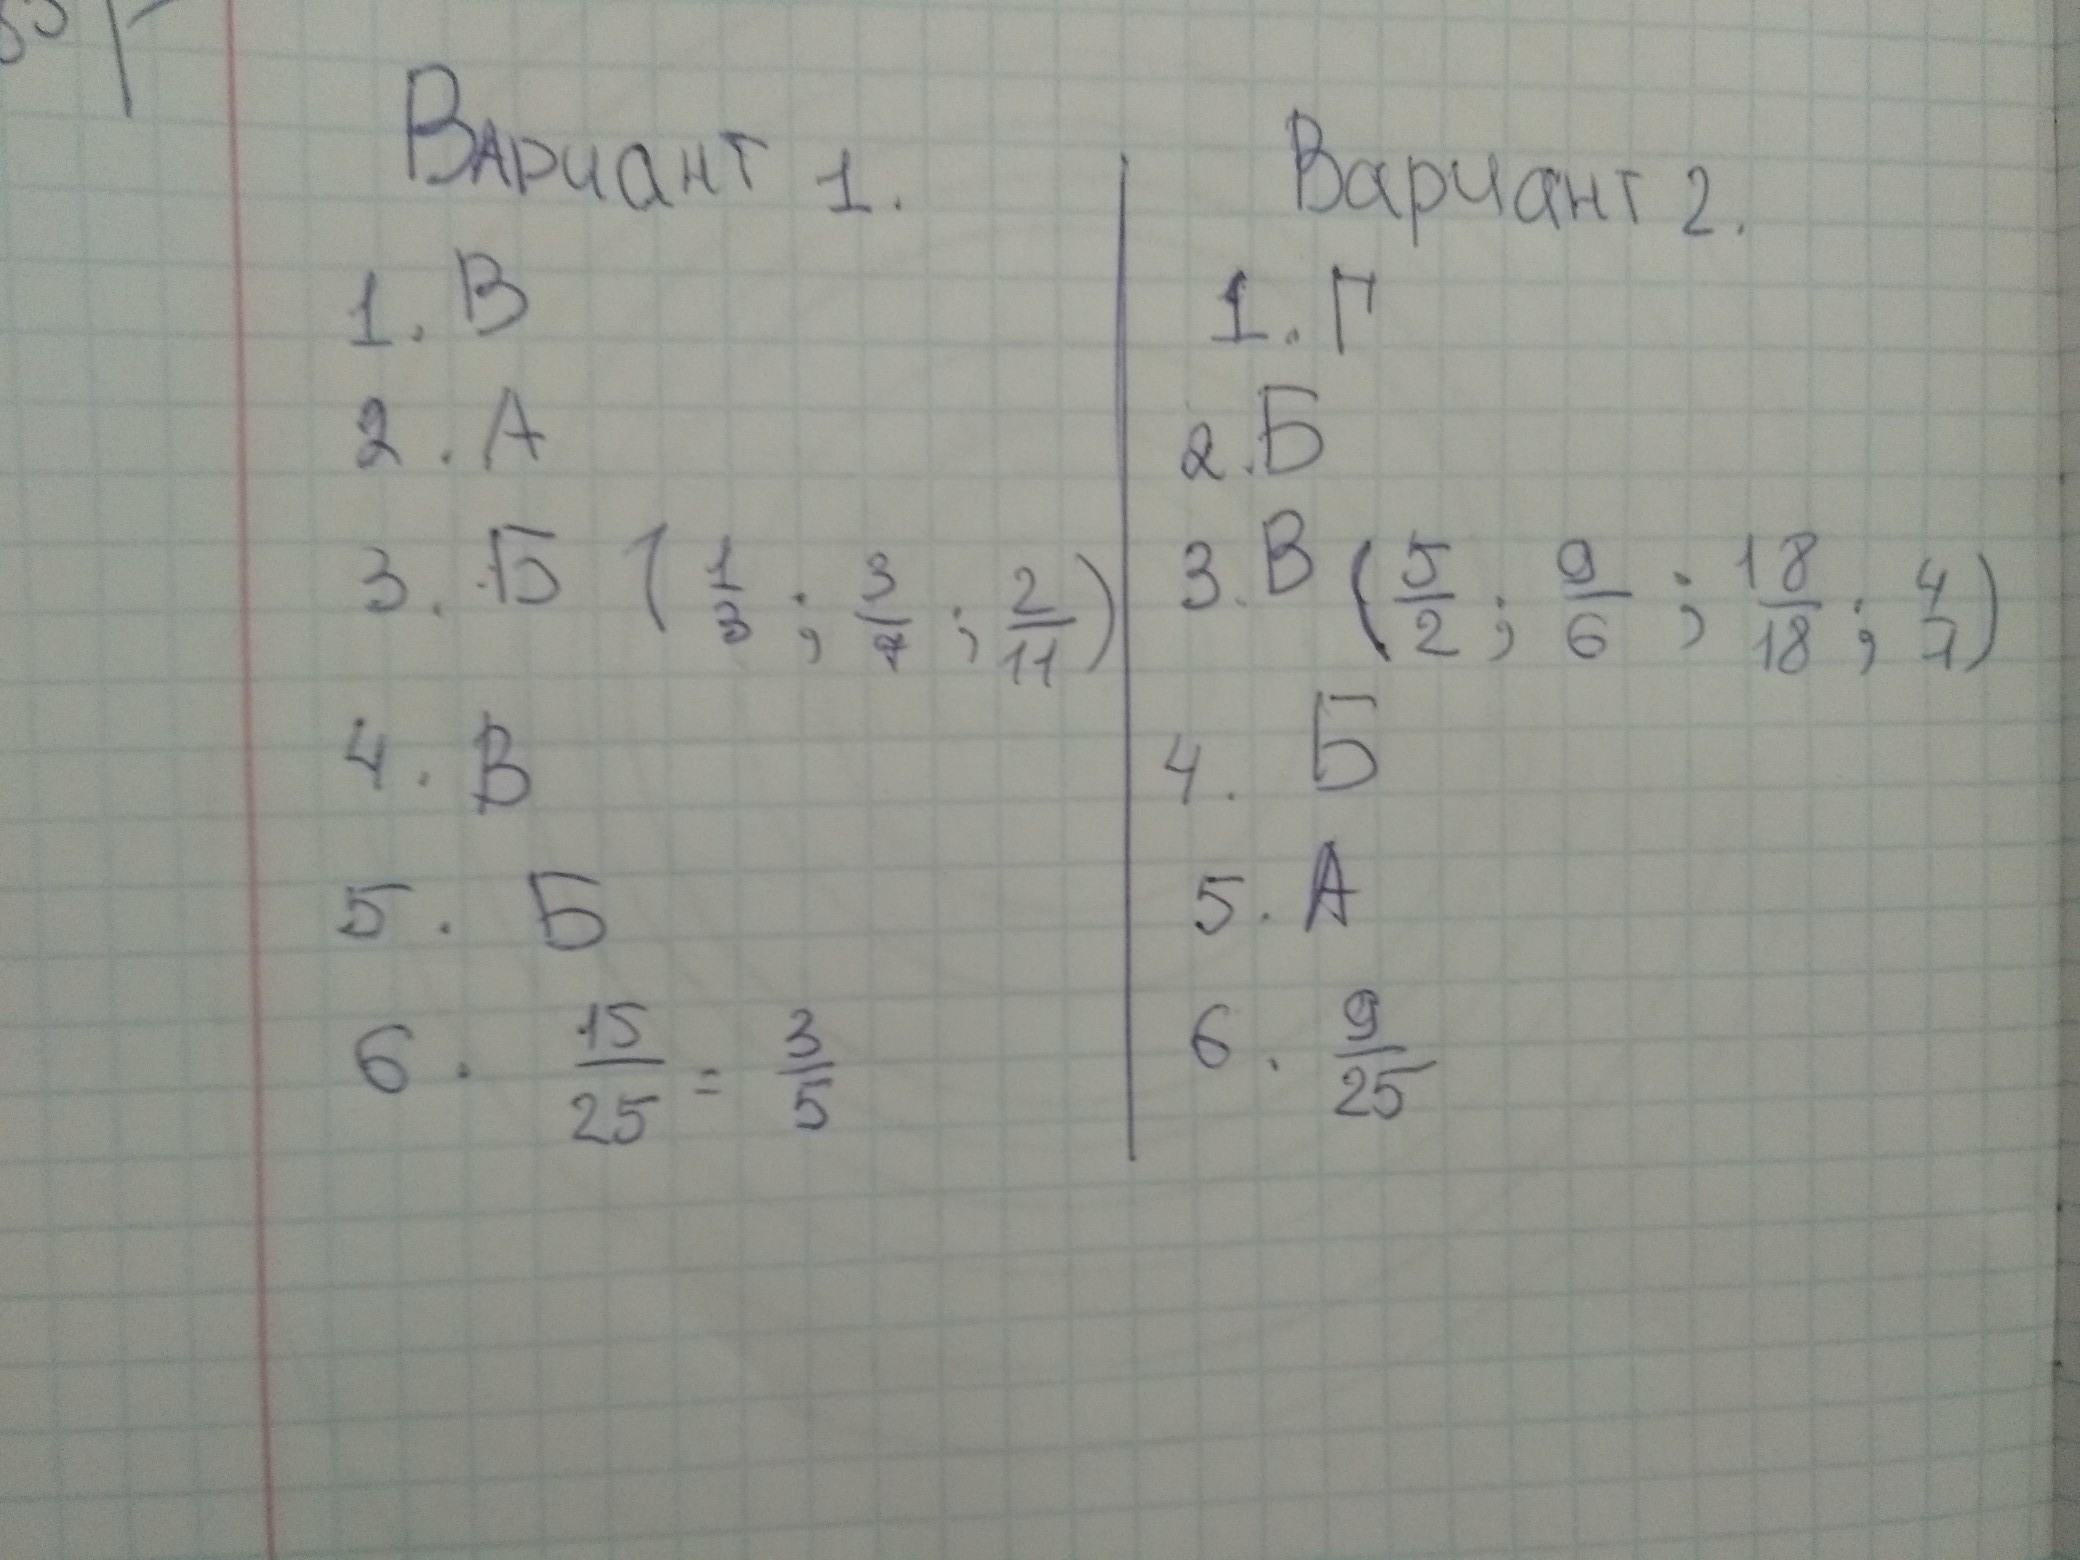 Вариант 1.
1. В
2. А
3. Б (1/3; 3/7; 2/11)
4. В
5. Б
6. 15/25 = 3/5
Вариант 2.
1. Г
2. Б
3. В (5/2; 9/6; 18/18; 4/7)
4. Б
5. А
6. 9/25